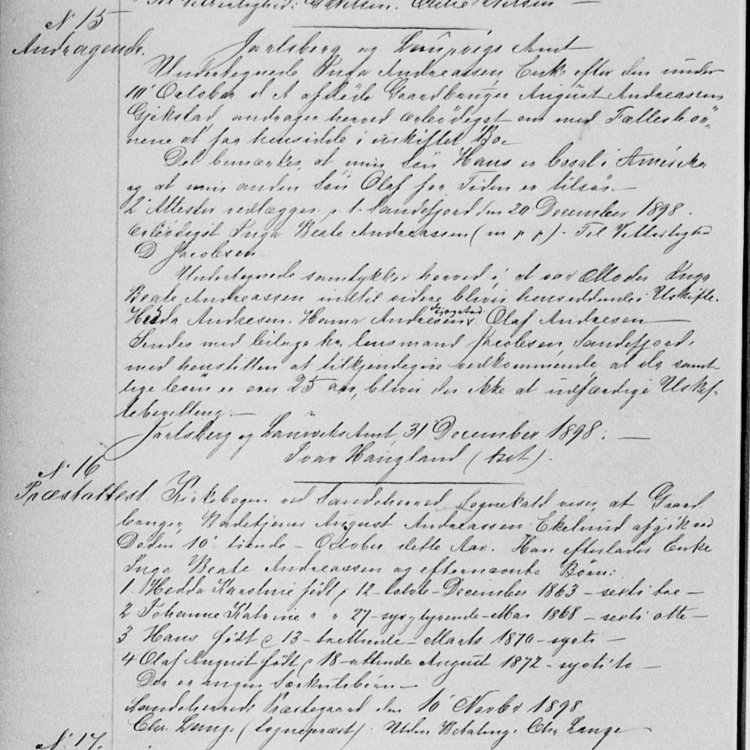 Til Vitterlighed:
N. 15
Andragende.
Jarlsberg og Laurvigs Amt
Undertegnede Inga Andreassen Enke efter den under
10' October d. A. afdøde Gaardbruger August Andreassen
Gjekstad, andrager herved ærbødigst om med Fællesbør-
nene at faa hensidde i uskiftet Bo.
Det bemærkes, at min Søn Hans er bosat i Amerika
og at min anden Søn Olaf for Tiden er tilsøs.
2 Attester vedlægges. p. t. Sandefjord den 20 December 1898.
Ærbødigst Inga Beate Andreassen (m p p). Til Vitterlighed
D Jacobsen
Undertegnede samtykker herved i, at vor Moder Inga
Beate Andreassen indtil videre bliver hensiddende i Uskifte.
Hedda Andresen. Hanna Andresen. Olaf Andresen
Sendes med bilage fra lensmand Jacobsen, Sandefjord,
med henstillen at tilkjendegive vedkommende at da samt-
lige børn er over 25 aar, bliver der ikke at udfærdige Uskif-
tebevilling.
Jarlsberg og Laurviks Amt, 31 December 1898.
Ivar Haugland (
N. 16
Præstattest
Kirkebogen ved Sandeherred Sognekald viser, at Gaard
bruger, August Andreassen Ekelund afgik ved
Døden 10' tiende - October dette Aar. Han efterlader Enke
Inga Beate Andreassen og efternævnte Børn:
1 Hedda Karoline født d 12 - tolvte - December 1863 - sexti tre -
2 Johanne Katrine " " 27 - syvtyvende - Mai 1868 - sexti otte -
3 Hans født d 13 - trettende - Marts 1870 - sytti -
4 Olaf August født d 18 - attende August 1872 - sytti to -
Der er ingen Særkulsbørn -
Sandeherred Præstegaard den 10' Novbr 1898
Chr. Lange (Sognepræst). Uden Betaling. Chr Lange
N. 17.